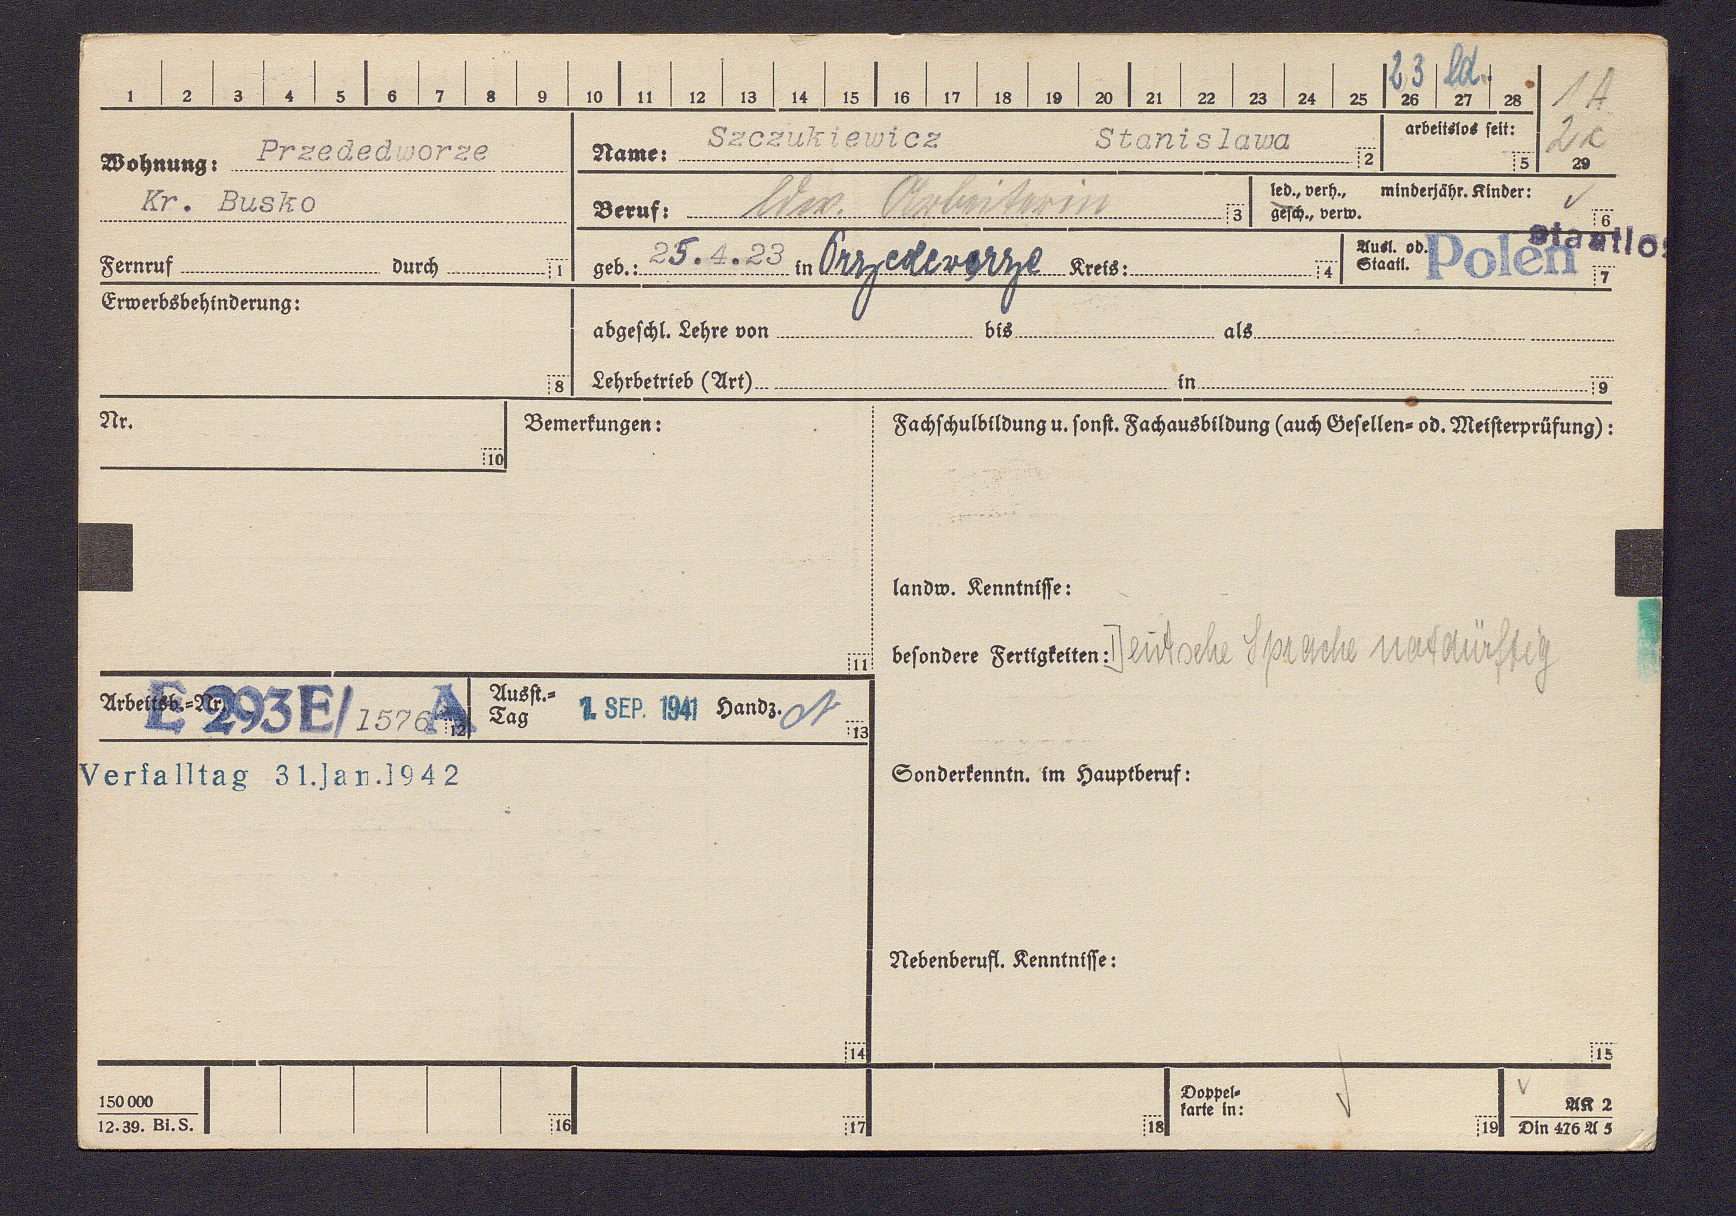 23 ld.
1 2 3 4 5 6 7 8 9 10 11 12 13 14 15 16 17 18 19 20 21 22 23 24 25 26 27 28
1A
2x
29
Wohnung: Przededworze
Kr. Busko
Fernruf durch 1
Name: Szczukiewicz Stanislawa 2
arbeitslos seit: 5
Beruf: ldw. Arbeiterin 3
led., verh., minderjähr. Kinder:
gesch., verw. 6
geb.: 25.4.23 in Przedeworze Kreis: 4
Ausl. od. Staatl. Polen Staatlos 7
Erwerbsbehinderung: 8
abgeschl. Lehre von bis als
Lehrbetrieb (Art) in 9
Nr. 10
Bemerkungen: 11
Fachschulbildung u. sonst. Fachausbildung (auch Gesellen- od. Meisterprüfung):
landw. Kenntnisse:
besondere Fertigkeiten: Deutsche Sprache notdürftig
Arbeitsb.-Nr. E 293E/1576 A 12
Ausst.-Tag 1. SEP. 1941 Handz. 13
Verfalltag 31.Jan.1942
14
Sonderkenntn. im Hauptberuf:
Nebenberufl. Kenntnisse:
15
150 000
12. 39. Bi. S.
16
17
18
Doppel-
karte in: 19
AK 2
Din 476 A 5